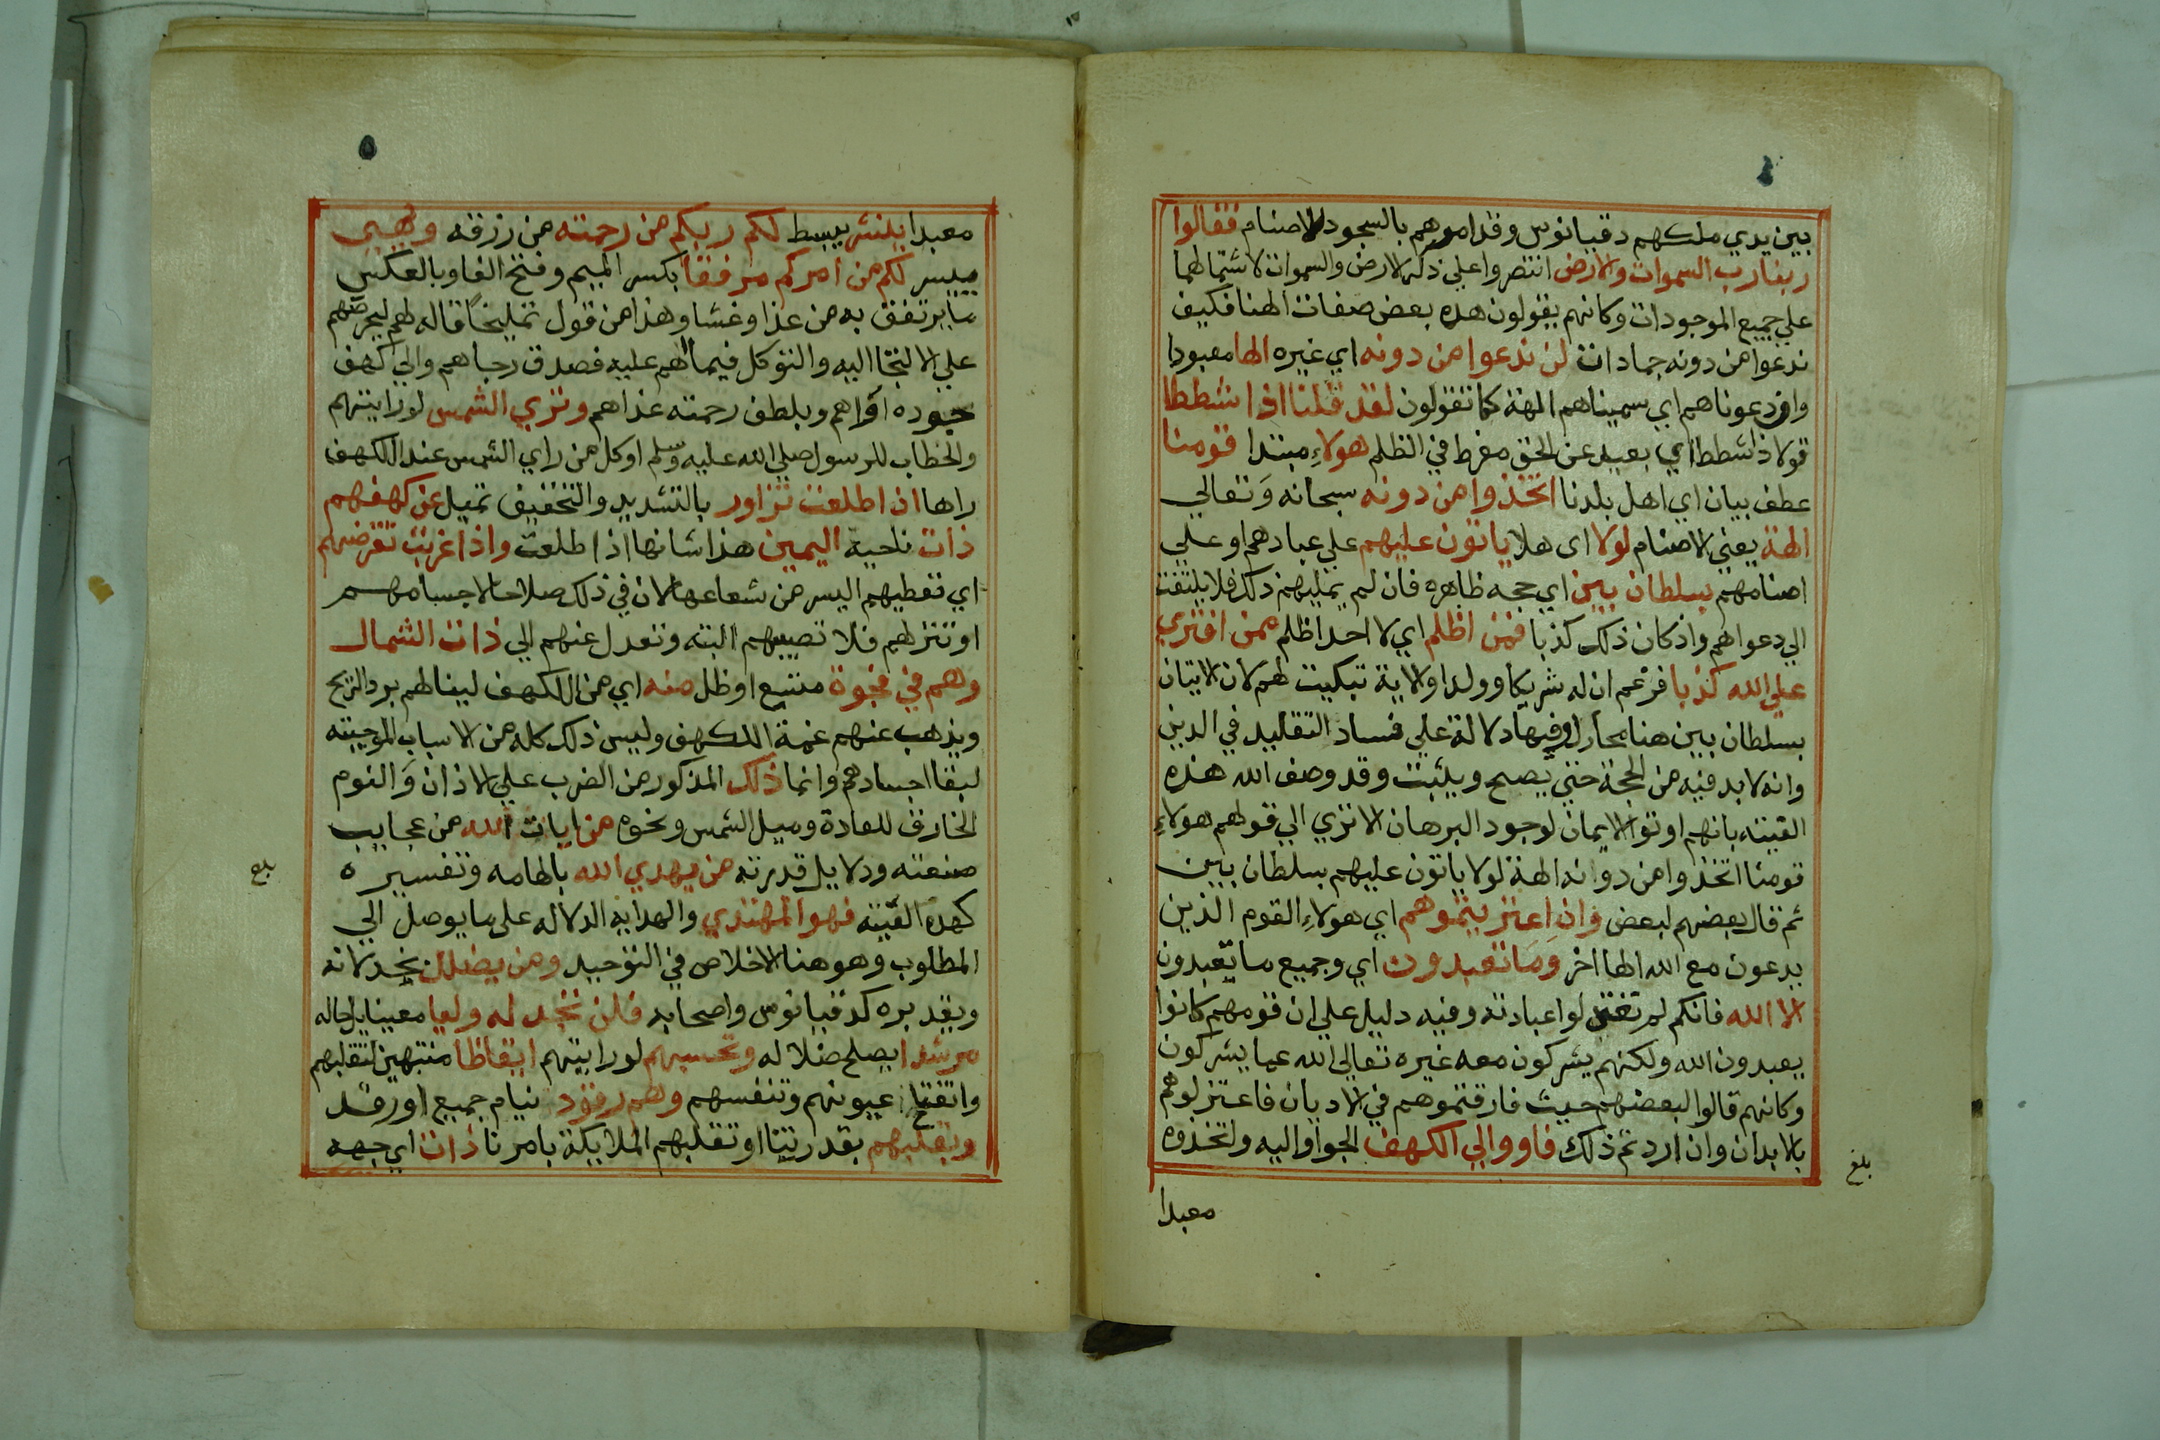 بين يدي ملكهم دقيانوس وقد امرهم بالسجود للاصنام فقالوا
ربنا رب السموات والارض انتصروا علي ذكر الارض والسموات لاشتمالهما
علي جميع الموجودات وكانهم يقولون هذه بعض صفات الهنا فكيف
ندعوا من دونه جمادات لن ندعوا من دونه اي غيره الها معبودا
وان دعوناهم اي سميناهم الهة كما تقولون لقد قلنا اذا شططا
قولا ذا شطط اي بعيد عن الحق مفرط في الظلم هولاء مبتدا قومنا
عطف بيان اي اهل بلدنا اتخذوا من دونه سبحانه وتعالي
الهة يعني الاصنام لولا اى هلا ياتون عليهم علي عبادهم او علي
اصنامهم بسلطان بين اي حجه ظاهره فان لم يمليهم ذلك فلا يلتفت
الي دعواهم واذ كان ذلك كذبا فمن اظلم اي لا احد اظلم ممن افتري
علي الله كذبا فزعم ان له شريكا وولدا والاية تبكيت لهم لان الاتيان
بسلطان بين هنا محال وفيها دلالة علي فساد التقليد في الدين
وانه لا بد فيه من الحجة حتي يصح ويثبت وقد وصف الله هذه
الفتية بانهم اوتوا الايمان لوجود البرهان الا تري الي قولهم هولاء
قومنا اتخذوا من دونه الهة لولا ياتون عليهم بسلطان بين
ثم قال بعضهم لبعض وان اعتزيتموهم اي هولاء القوم الذين
يدعون مع الله الها اخر وما تعبدون اي وجميع ما تعبدون
الا الله فانكم لم تعتزلوا عبادته وفيه دليل علي ان قومهم كانوا
يعبدون الله ولكنهم يشركون معه غيره تعالي الله عما يشركون
وكانهم قالوا لبعضهم حيث فارقتموهم في الاديان فاعتزلوهم
بالابدان وان اردتم ذلك فاووا الي الكهف الجوا اليه ولتخذوه
بلغ
معبدا
٥
معبدا ينشر يبسط لكم ربكم من رحمته من رزقه ويهيي
ييسر لكم من امركم مرفقا بكسر الميم وفتح الفا وبالعكس
ما يرتفق به من غذا وعشا وهذا من قول تمليخا قاله لهم ليحرضهم
علي الالتجا اليه والتوكل فيما الهم عليه فصدق رجاهم والي كهف
جوده اواهم وبلطف رحمته غذاهم وتري الشمس لو رايتهم
والخطاب للرسول صلي الله عليه وسلم او كل من راي الشمس عند الكهف
راها اذا طلعت تزاور بالتشديد والتخفيف تميل عن كهفهم
ذات ناحية اليمين هذا شانها اذا طلعت واذا غربت تقرضهم
اي تعطيهم اليسر من شعاعها لان في ذلك صلاحا لاجسامهم
او تتركهم فلا تصيبهم البته وتعدل عنهم الي ذات الشمال
وهم في فجوة متسع او ظل منه اي من الكهف لينالهم برد الريح
ويذهب عنهم غمة الكهف وليس ذلك كله من الاسباب الموجبته
لبقا اجسادهم وانما ذلك المذكور من الضرب علي الاذان والنوم
الخارق للعادة وميل الشمس ونحوه من ايات الله من عجايب
صنعته ودلايل قدرته من يهدي الله بالهامه وتفسيره
كهذه الفتية فهو المهتدي والهدايه الدلاله على ما يوصل الي
المطلوب وهو هنا الاخلاص في التوحيد ومن يضلل بخذلانه
وبقدره كدقيانوس واصحابه فلن تجد له وليا معينا يلي حاله
مرشدا يصلح ضلاله وتحسبهم لو رايتهم ايقاظا منتبهين لتقلبهم
وانفتاح عيونهم وتنفسهم وهم رقود نيام جميع اورقد
ونقلبهم بقدرتنا او تقلبهم الملايكة بامرنا ذات اي جهه
بلغ